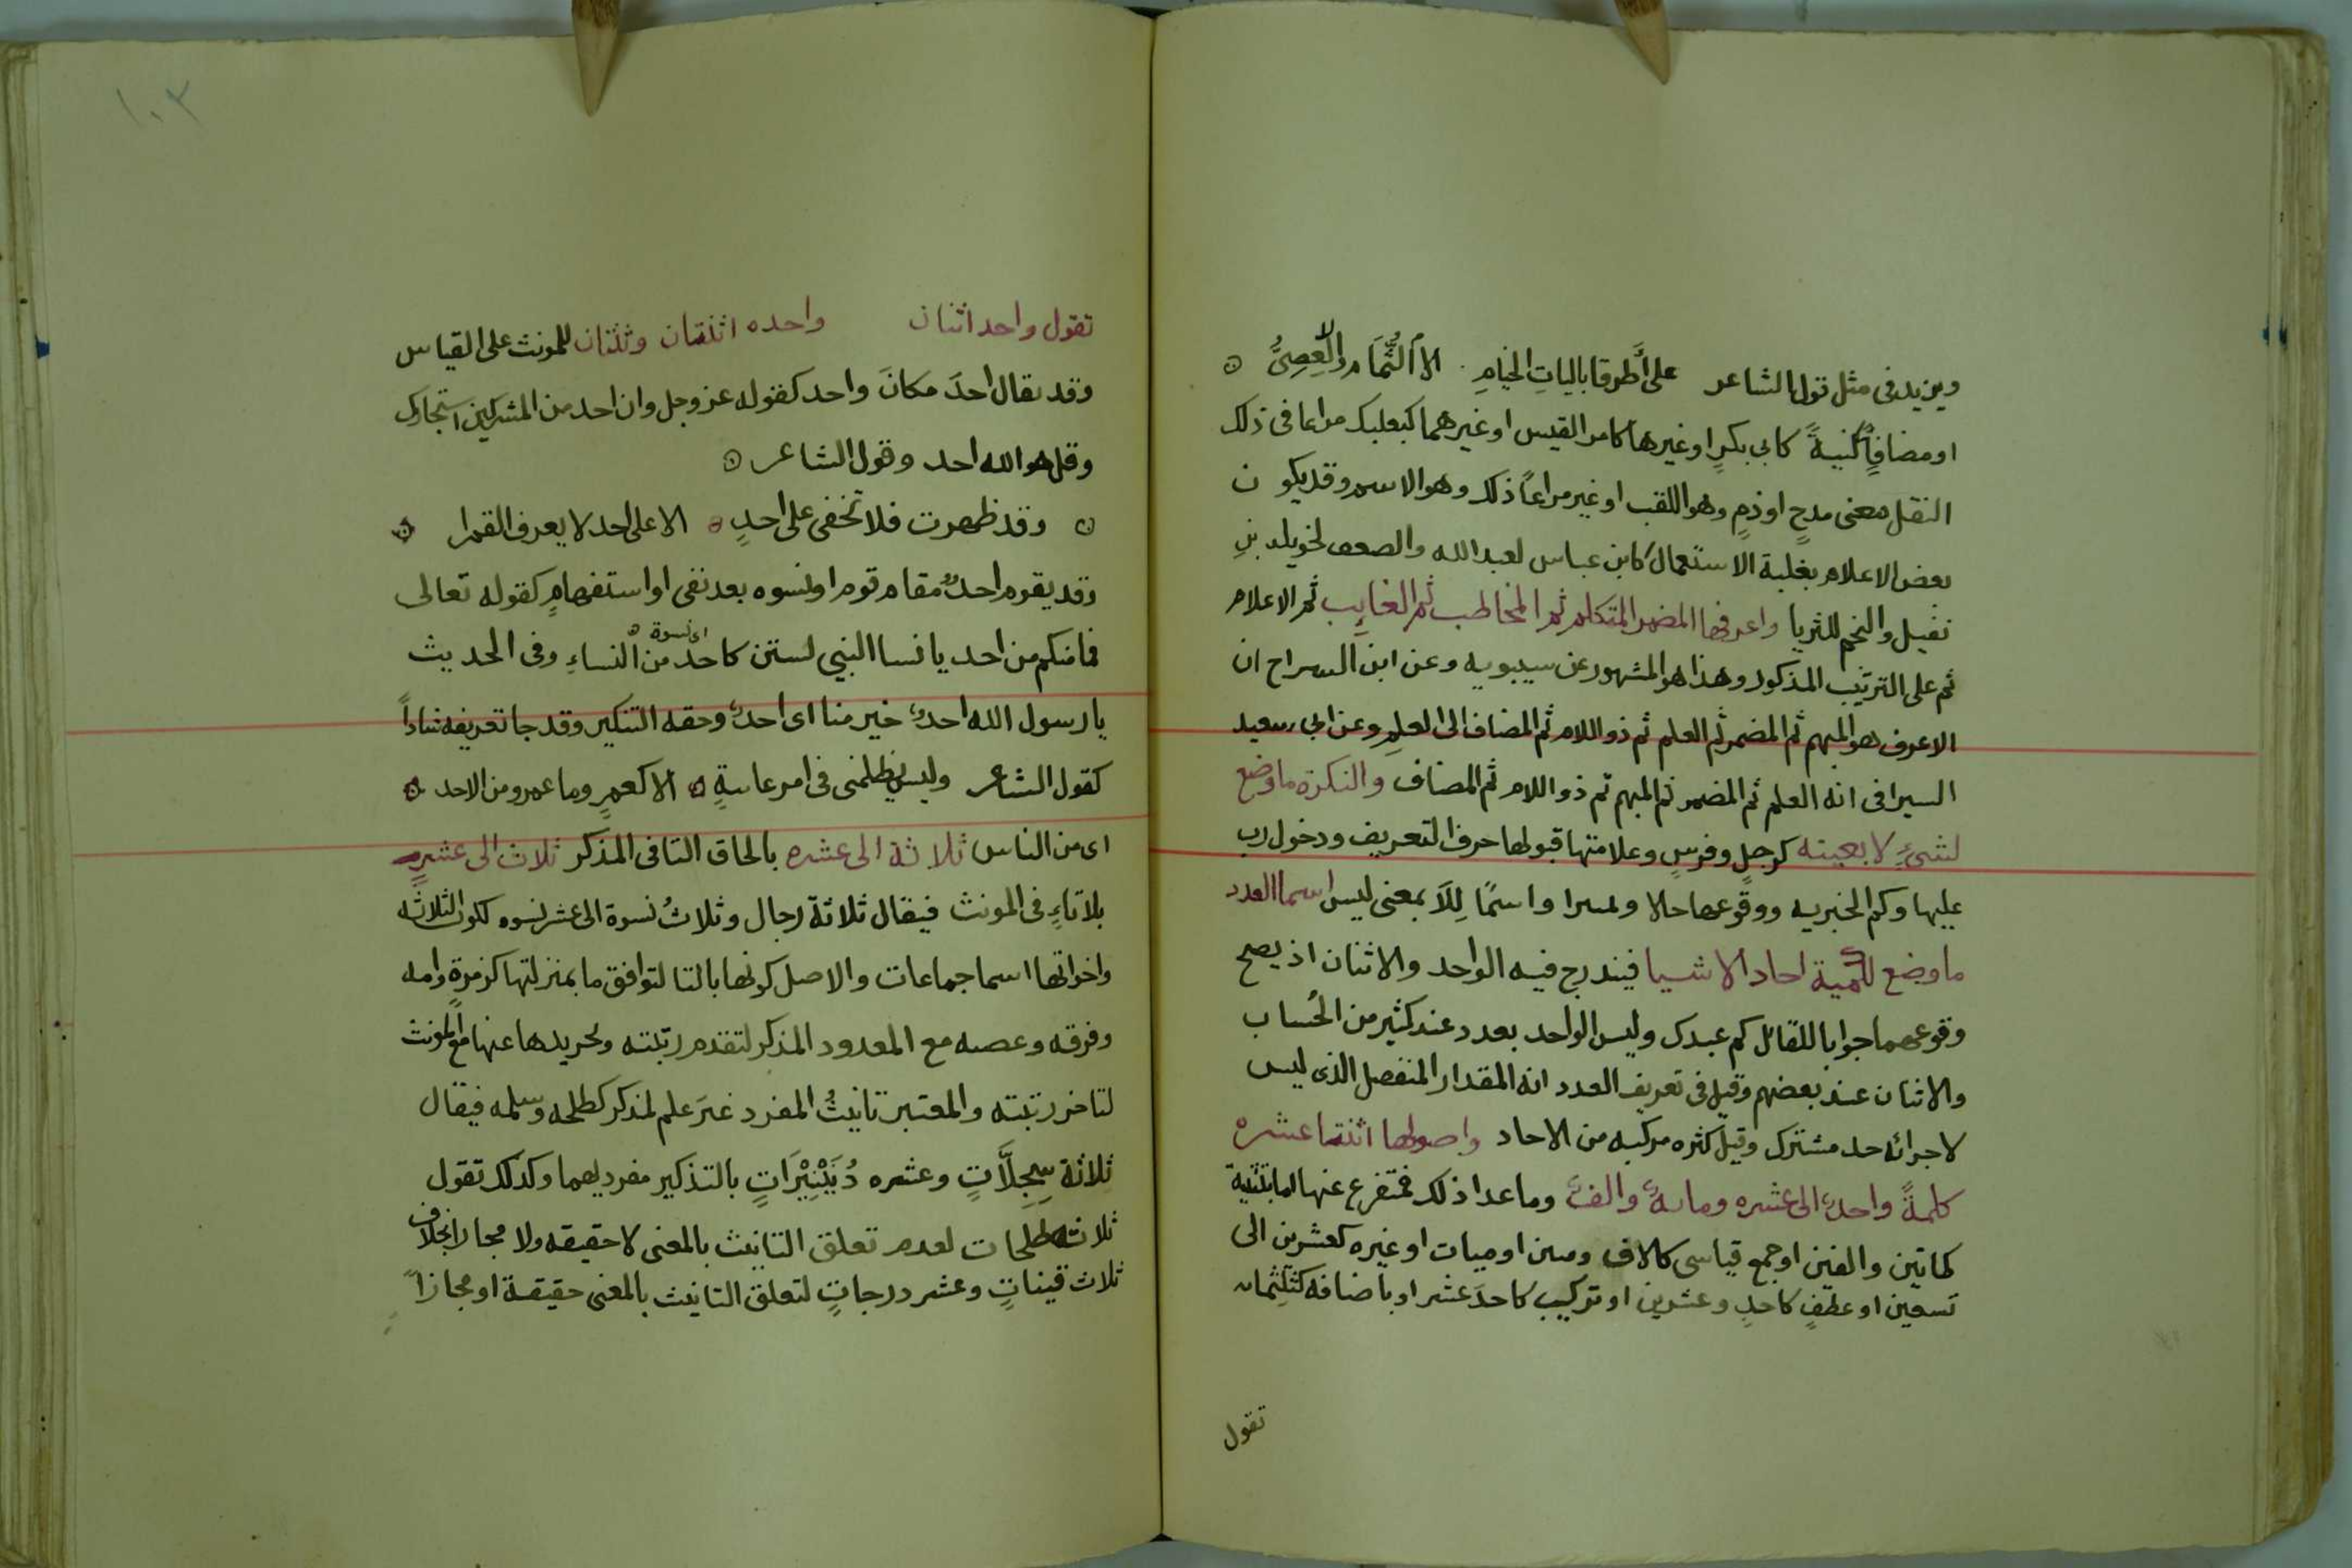 ويزيد فى مثل قول الشاعر على أَطرِقا بالياتِ الخيامِ الا الثُّمَام والا العِصِىُّ
او مضافٍ كُنيةً كابى بكرٍ او غيرها كامر القيس او غيرهما كبعلبك مراعا فى ذلك
النقل معنى مدحٍ او ذمٍ وهو اللقب او غير مراعاً ذلك وهو الاسم وقد يكون
بعض الاعلام بغلبة الاستعمال كابن عباس لعبد الله والصعق لخويلد بنِ
نفيل والنجم للثريا واعرفها المضمر المتكلم ثم المخاطب ثم الغايب ثم الاعلام
ثم على الترتيب المذكور وهذا هو المشهور عن سيبويه وعن ابن السراج ان
الاعرف هو المبهم ثم المضمر ثم العلم ثم ذو اللام ثم المضاف الى العلمِ وعن ابى سعيد
السيرافى انه العلم ثم المضمر ثم المبهم ثم ذو اللام ثم المضاف والنكرة ما وضع
لشىءٍ لا بعينه كرجلٍ وفرسٍ وعلامتها قبولها حرف التعريف ودخول رب
عليها وكم الخبريه ووقوعها حالا واسمًا لِلاَ بمعنى ليس اسما العدد
ما وضع لكمية احاد الاشيا فيندرج فيه الواحد والاثنان اذ يصح
وقوعهما جوابا للقائل كم عبدك وليس الواحد بعدد عند كثير من الحُساب
والاثنان عند بعضهم وقيل فى تعريف العدد انه المقدار المنفصل الذى ليس
لاجزائه حد مشترك وقيل كثره مركبه من الاحاد واصولها اثنتا عشره
كلمةً واحدٌ الى عشره ومايهٌ والفٌ وما عدا ذلك فمتفرع عنها اما بتثنية
كماتين والفين او جمع قياسى كالاف ومين او ميات او غيره كعشرين الى
تسعين او عطفٍ كاحدٍ وعشرين او تركيب كاحدَ عشر او باضافه كثلثمايه
تقول
١٠٣
تقول واحد اثنان واحده اثنتان وثنتان للمونث على القياس
وقد يقال احدَ مكانَ واحد كقوله عز وجل وان احد من المشركين استجارك
وقل هو الله احد وقول الشاعر
وقد ظهرت فلا تخفى على احدٍ الا على احد لا يعرف القمرا
وقد يقوم احدٌ مقام قوم او نسوه بعد نفى او استفهامٍ كقوله تعالى
فما منكم من احد يا نسا النبي لستن كاحد من النساءِ وفى الحديث
اى نسوة
يا رسول الله احدٌ خير منا اى احدٌ وحقه التنكير وقد جا تعريفه شاذاً
كقول الشاعر وليس يظلمنى فى امر عاسةٍ الا كعمرٍ وما عمرو من الاحد
اى من الناس ثلاثة الى عشره بالحاق التا فى المذكر ثلاث الى عشرٍ
بلا تاءٍ فى المونث فيقال ثلاثة رجال وثلاثُ نسوة الى عشر نسوه لكون الثلاثه
واخواتها اسما جماعات والاصل كونها بالتا لتوافق ما بمنزلتها كزمرةٍ وامه
وفرقه وعصبه مع المعدود المذكر لتقدم رتبته وتجريدها عنها مع المونث
لتاخر رتبته والمعتبر تانيثُ المفرد غيرَ علم لمذكر كطلحه وسلمه فيقال
ثلاثة سِجِلَّاتٍ وعشره دُنَيْنِيْرَاتٍ بالتذكير مفرديهما وكذلك تقول
ثلاثه طلحات لعدم تعلق التانيث بالمعنى لا حقيقه ولا مجازا بخلاف
ثلاث قيناتٍ وعشر درجاتٍ لتعلق التانيث بالمعنى حقيقة او مجازاً